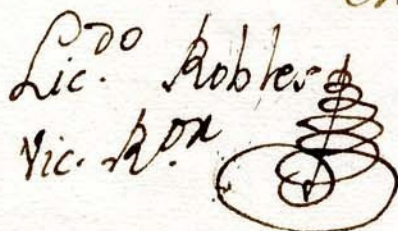 Lic.do Robles
Vic. R.on